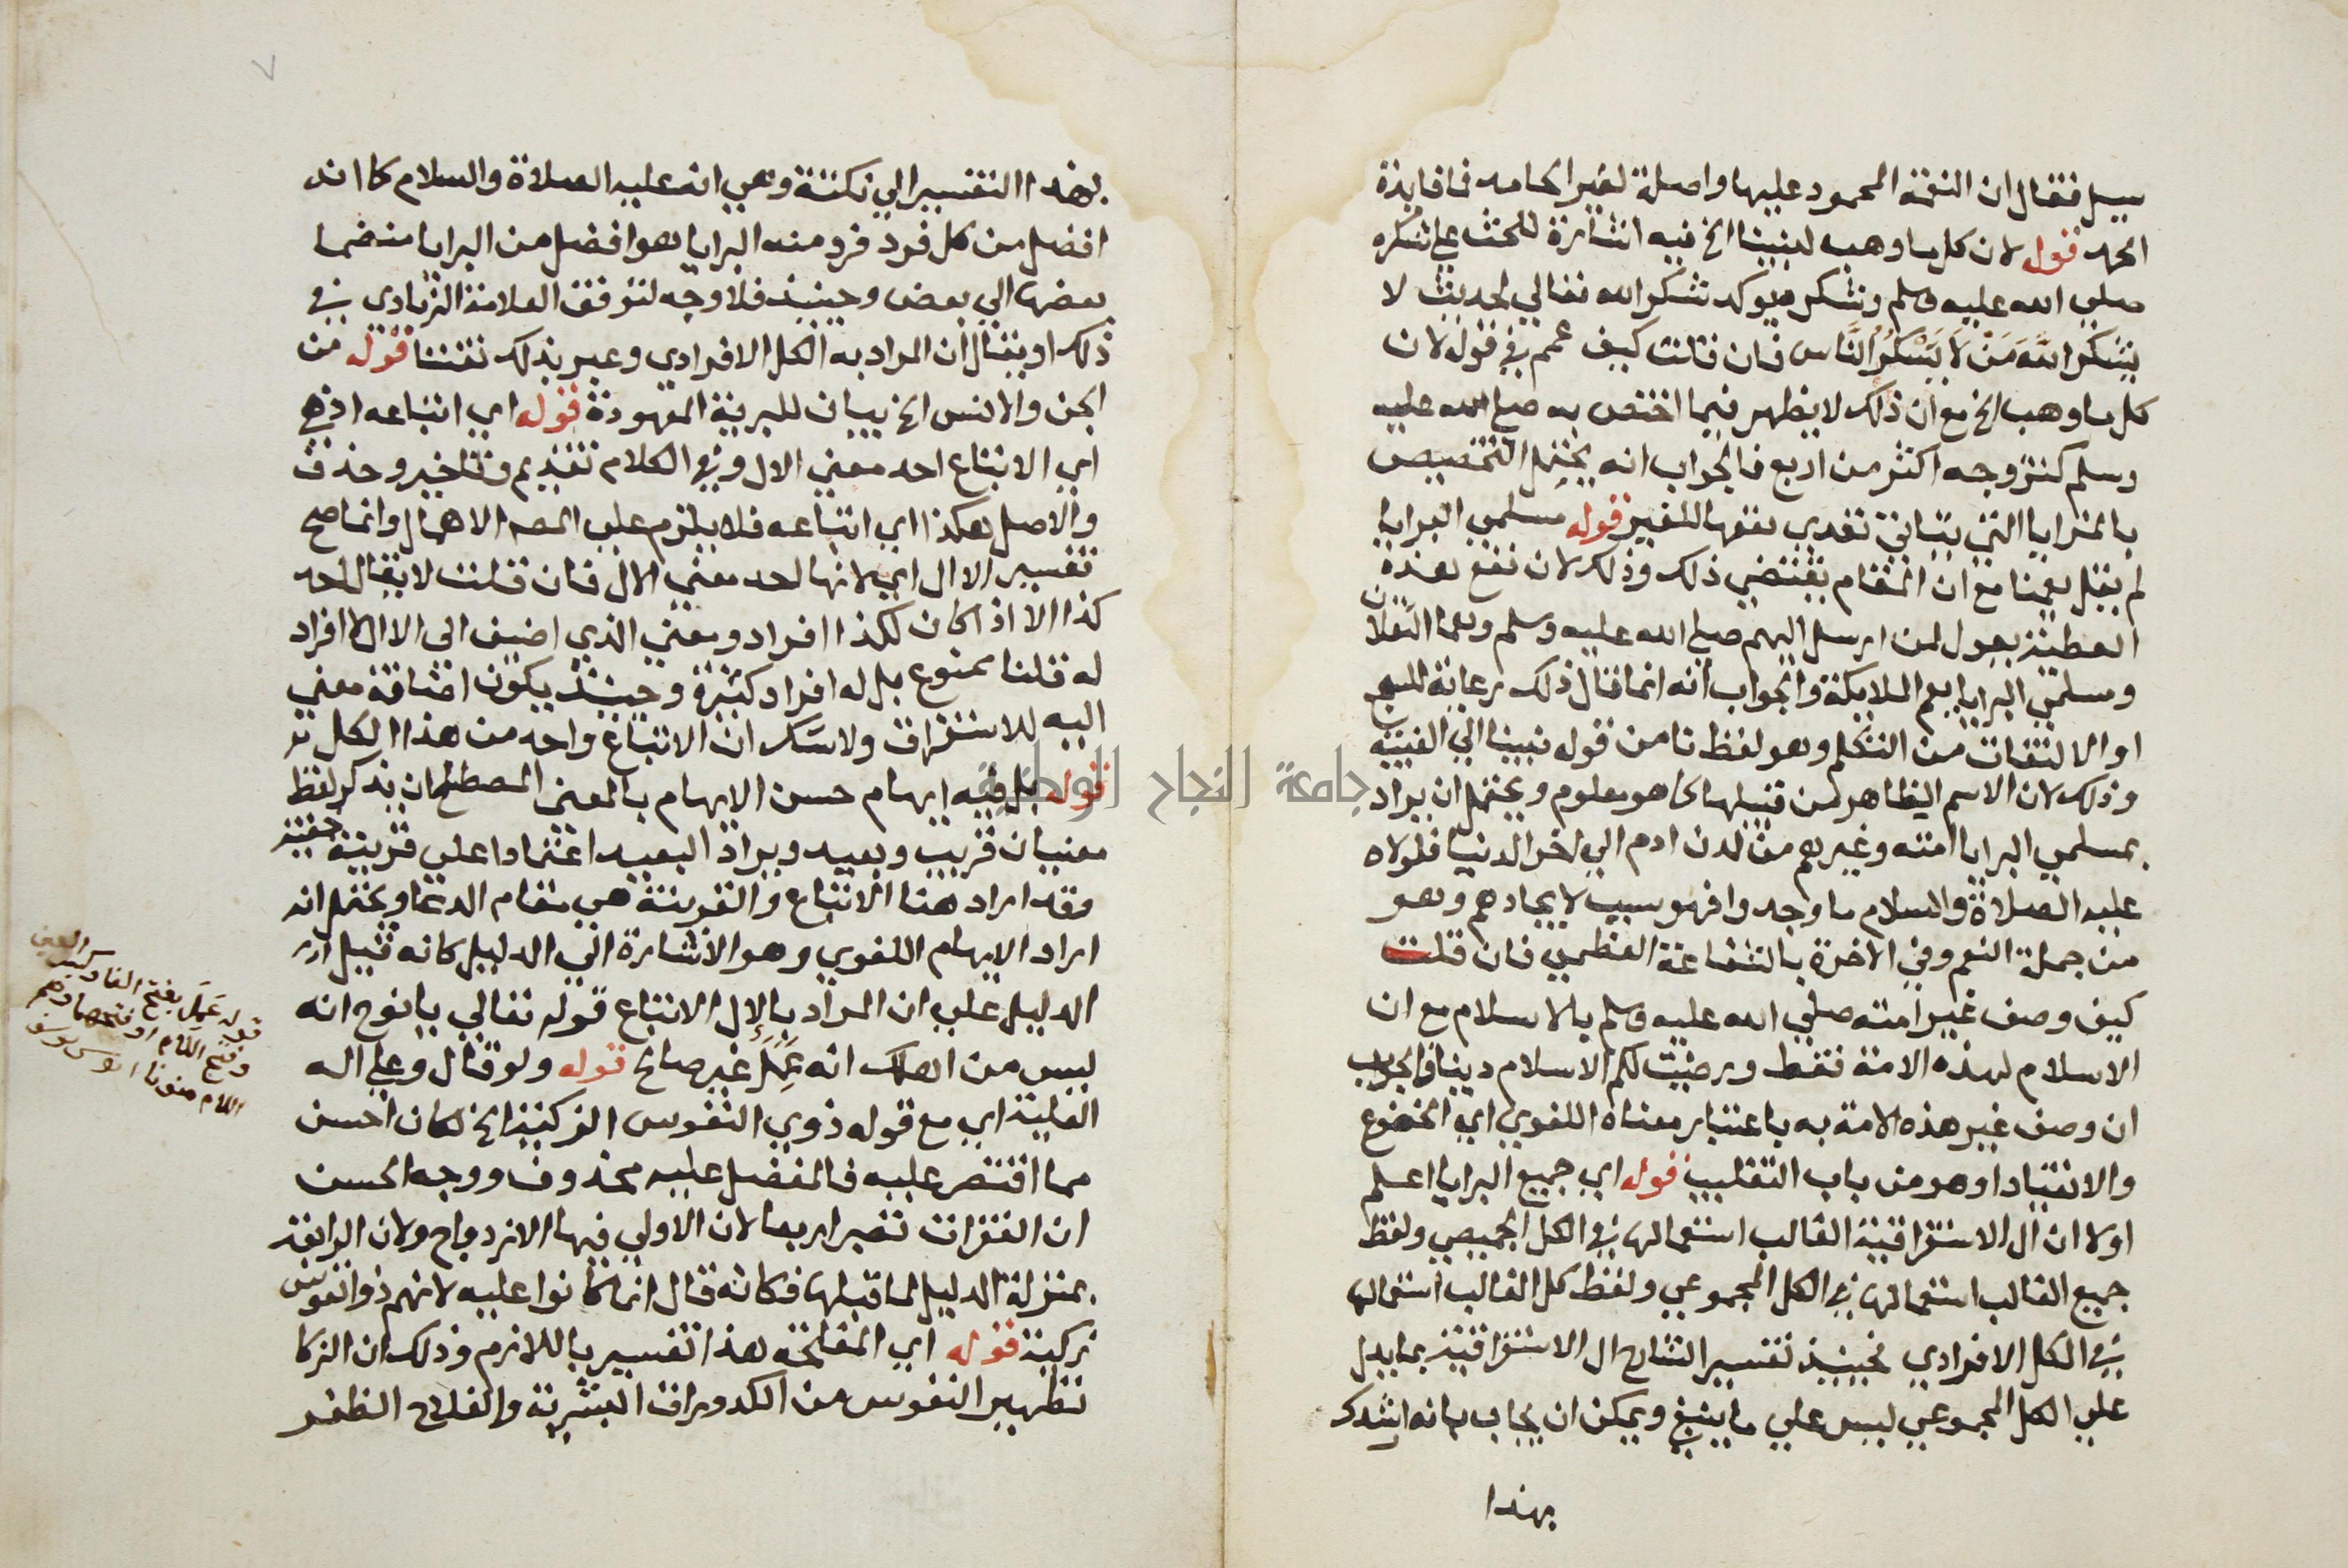 سيل فقال ان النعمة المحمود عليها واصلة لغير الحامد فما فايدة
الحمد قوله لان كل ما وهب لنبينا الخ فيه اشارة للحث على شكره
صلى الله عليه وسلم وشكره يوكد شكر الله تعالى لحديث لا
يشكر الله من لا يشكر الناس فان قلت كيف عمم في قوله لان
كل ما وهب الخ مع ان ذلك لا يظهر فيما اختص به صلى الله عليه
وسلم كتزوجه اكثر من اربع فالجواب انه يحتمل التخصيص
بالمزايا التي يتاتى تعدي نفعها للغير قوله مسلمي البرايا
لم يقل لعمنا مع ان المقام يقتضي ذلك وذلك لان نفع هذه
العطية يعول لمن ارسل اليهم صلى الله عليه وسلم وهما الثقلان
ومسلمي البرايا يعم الملايكة والجواب انه انما قال ذلك رعاية للسجع
او الالتفات من التكلم وهو لفظ نا من قوله نبينا الى الغيبة
وذلك لان الاسم الظاهر من قبيلها كما هو معلوم ويحتمل ان يراد
بمسلمي البرايا امته وغيرهم من لدن ادم الى اخر الدنيا فلولاه
عليه الصلاة والسلام ما وجدوا فهو سبب لايجادهم وهو
من جملة النعم وفي الاخرة بالشفاعة العظمى فان قلت
كيف وصف غير امته صلى الله عليه وسلم بالاسلام مع ان
الاسلام لهذه الامة فقط ورضيت لكم الاسلام دينا فالجواب
ان وصف غير هذه الامة به باعتبار معناه اللغوي اي الخضوع
والانقياد او هو من باب التغليب قوله اي جميع البرايا اعلم
اولا ان ال الاستغراقية الغالب استعمالها في الكل الجميعي ولفظ
جميع الغالب استعمالها في الكل المجموعي ولفظ كل الغالب استعمالها
في الكل الافرادي فحينيذ تفسير الشارح ال الاستغراقية بما يدل
على الكل المجموعي ليس على ما ينبغي ويمكن ان يجاب بانه
بهذا
بهذا التفسير الى نكتة وهي انه عليه الصلاة والسلام كما انه
افضل من كل فرد فرد منه البرايا هو افضل من البرايا منضما
بعضها الى بعض وحينيذ فلا وجه لتوقف العلامة الزيادي في
ذلك او يقال ان المراد به الكل الافرادي وعبر بذلك تفننا قوله من
الجن والانس الخ بيان للبرية المعهودة قوله اي اتباعه اذ هي
اي الاتباع احد معنى الال وفي الكلام تقديم وتاخير وحذف
والاصل هكذا اي اتباعه فلا يلزم على المصـ الاهمال وانما صح
تفسير الال اي لانها احد معنى الال فان قلت لا يقال احد
كذا الا اذا كان لكذا افراد ومعنى الذي اضيف الى الال لا افراد
له قلنا ممنوع بل له افراد كثيرة وحينيذ يكون اضافة معنى
اليه للاستغراق ولا شك ان الاتباع واحد من هذا الكل
قوله بل فيه ايهام حسن الايهام بالمعنى المصطلح ان يذكر لفظ
معنيان قريب وبعيد ويراد البعيد اعتمادا على قرينة خفية
وقد اراد هنا الاتباع والقرينة هي مقام الدعا ويحتمل انه
اراد الايهام اللغوي وهو الاشارة الى الدليل كانه قيل
الدليل على ان المراد بالال الاتباع قوله تعالى يا نوح انه
ليس من اهلك انه عمل غير صالح قوله ولو قال وعلى اله
العلية اي مع قوله ذوي النفوس الزكية الخ لكان احسن
مما اقتصر عليه فالمفضل عليه محذوف ووجه الحسن
ان الفقرات تصير اربعا لان الاولى فيها الازدواج ولان الرابعة
بمنزلة الدليل لما قبلها فكانه قال انما كانوا عليه لانهم ذو انفوس
زكية قوله اي المفلحة هذا تفسير باللازم وذلك ان الزكا
تطهير النفوس من الكدورات البشرية والفلاح الظفر
قوله عمل بفتح الفا وكسر العين
وفتح اللام او فتحهما وضم
اللام منونا
جامعة النجاح الوطنية
٧